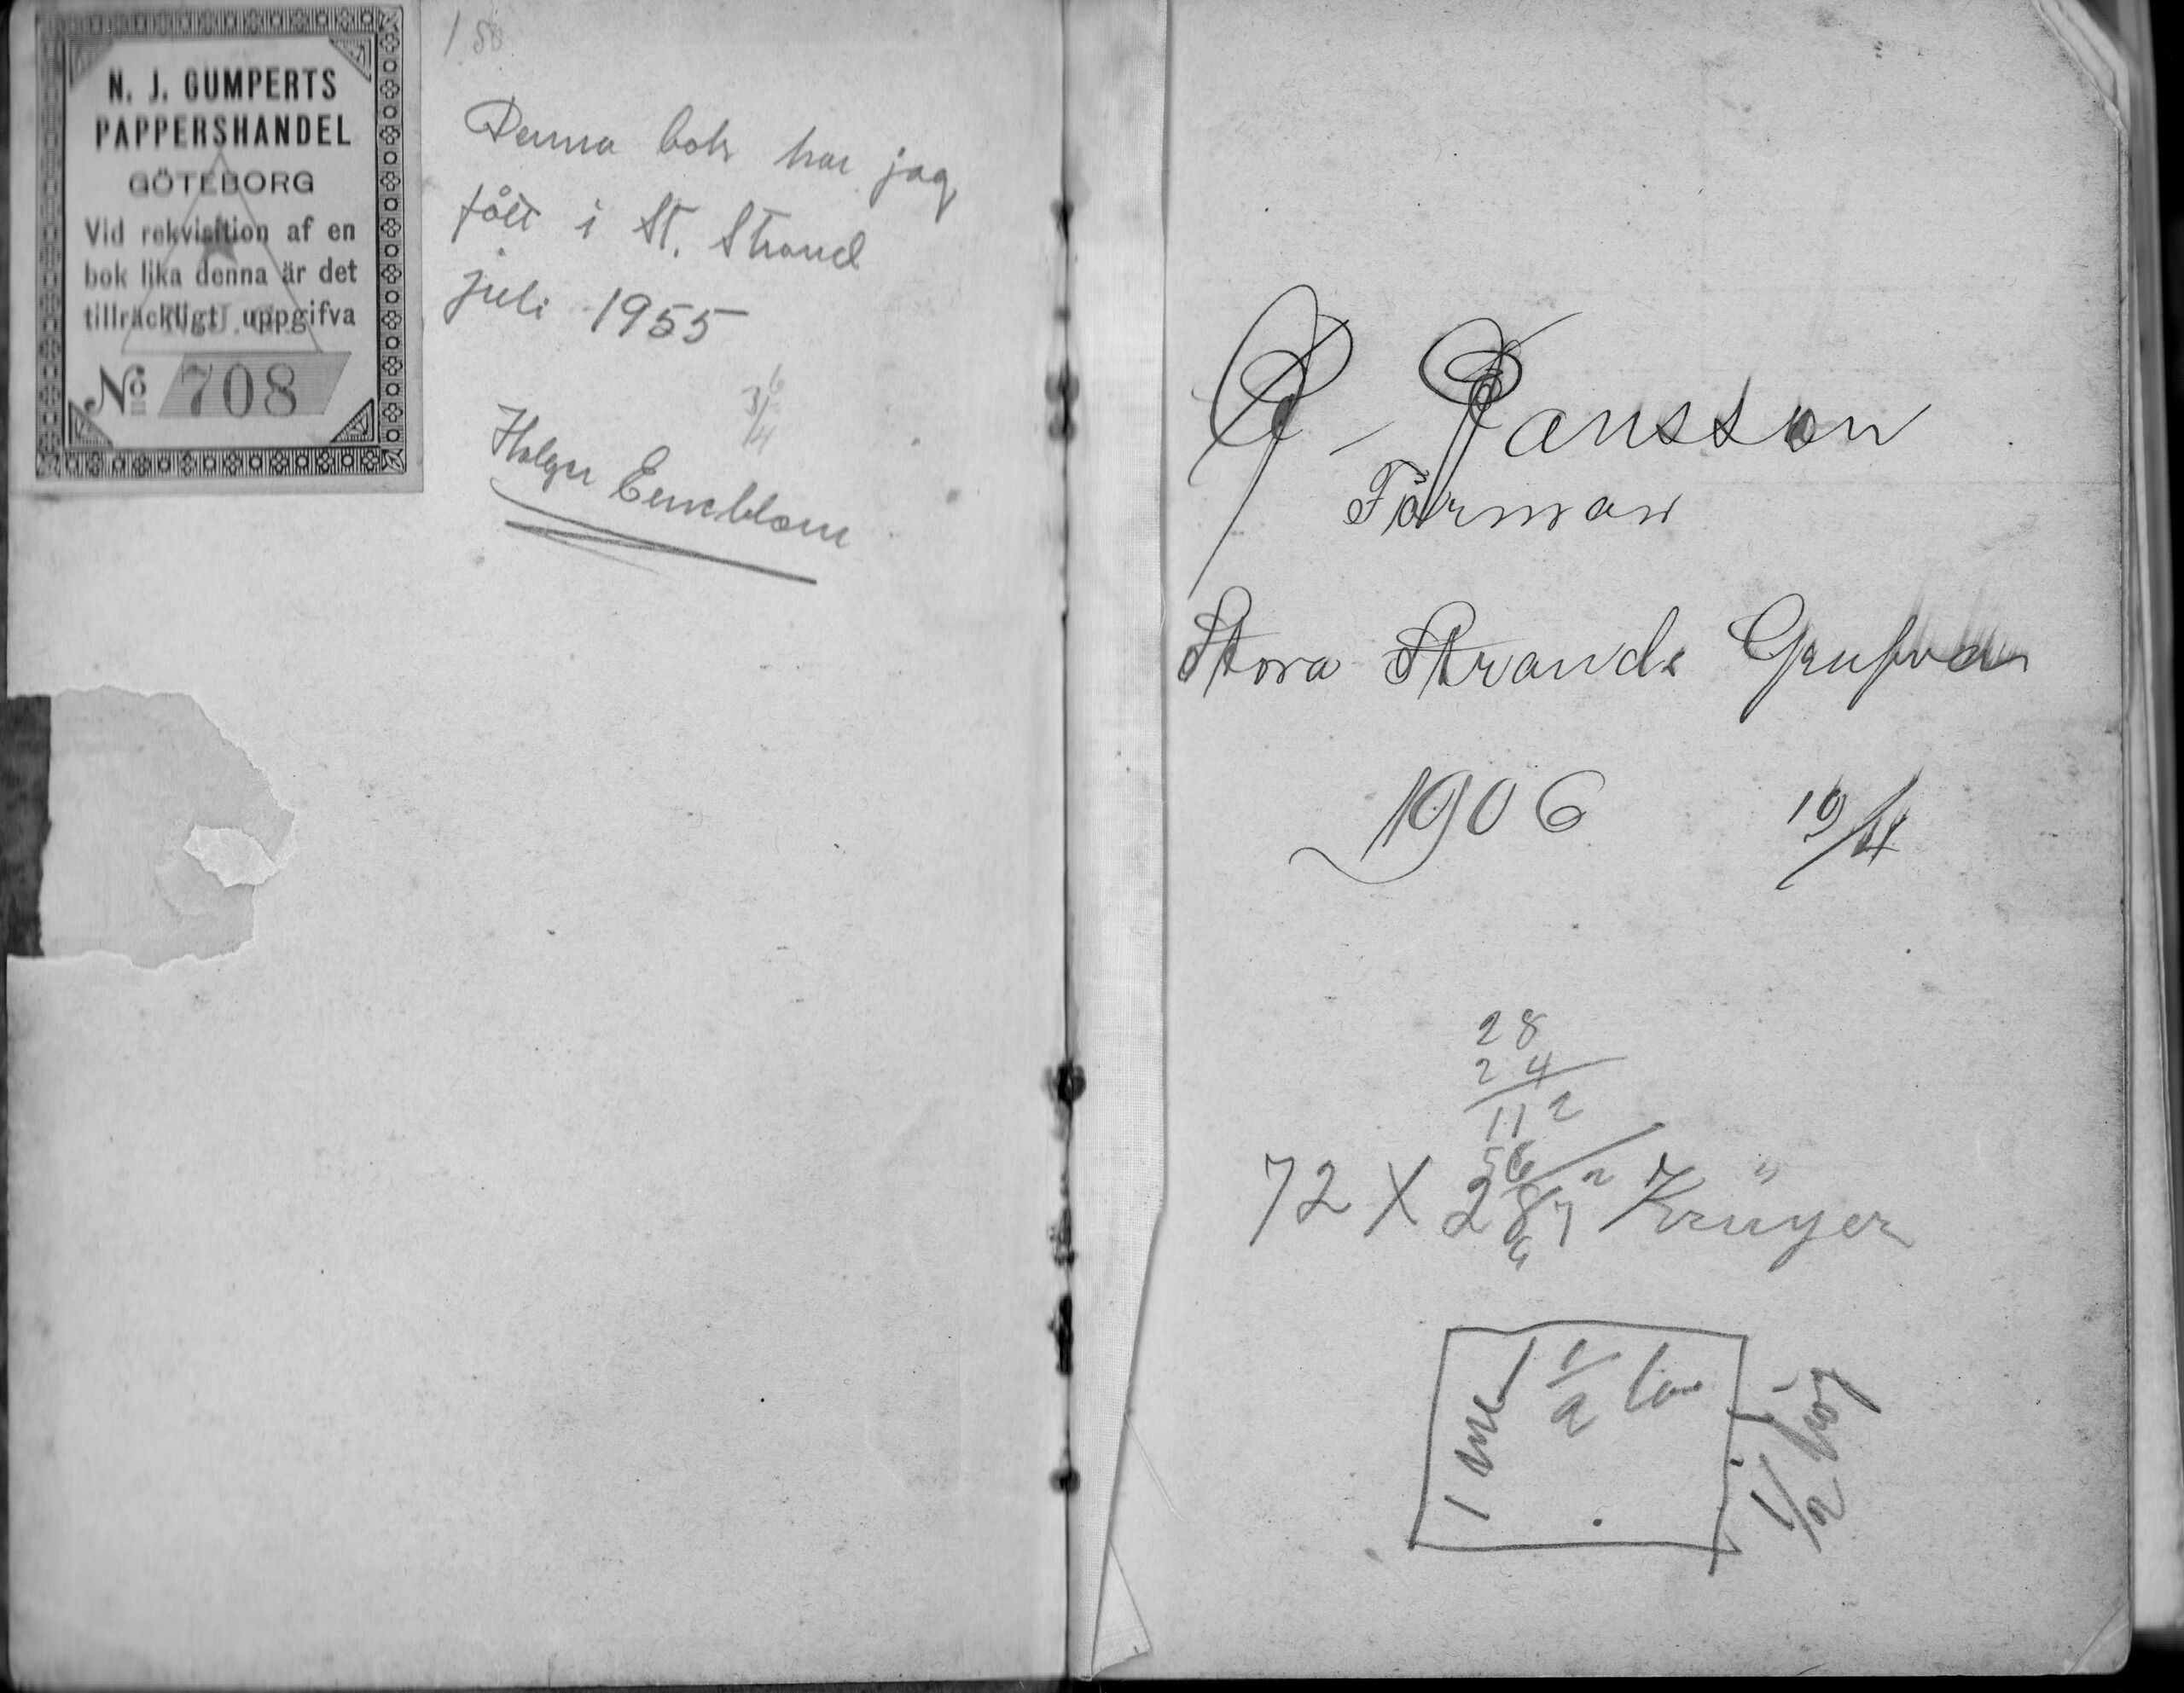 N. J. GUMPERTS
PAPPERSHANDEL
GÖTEBORG
Vid rekvisition af en
bok lika denna är det
tillräckligt uppgifva
No 708
Denna bok har jag
fått i St. Strand
juli 1955
Holger
Jansson
Förman
Stora Strands Grufva
1906 19/4
28
24
112
56
72 X 2 Krüger
1 1/2
1/2 hög